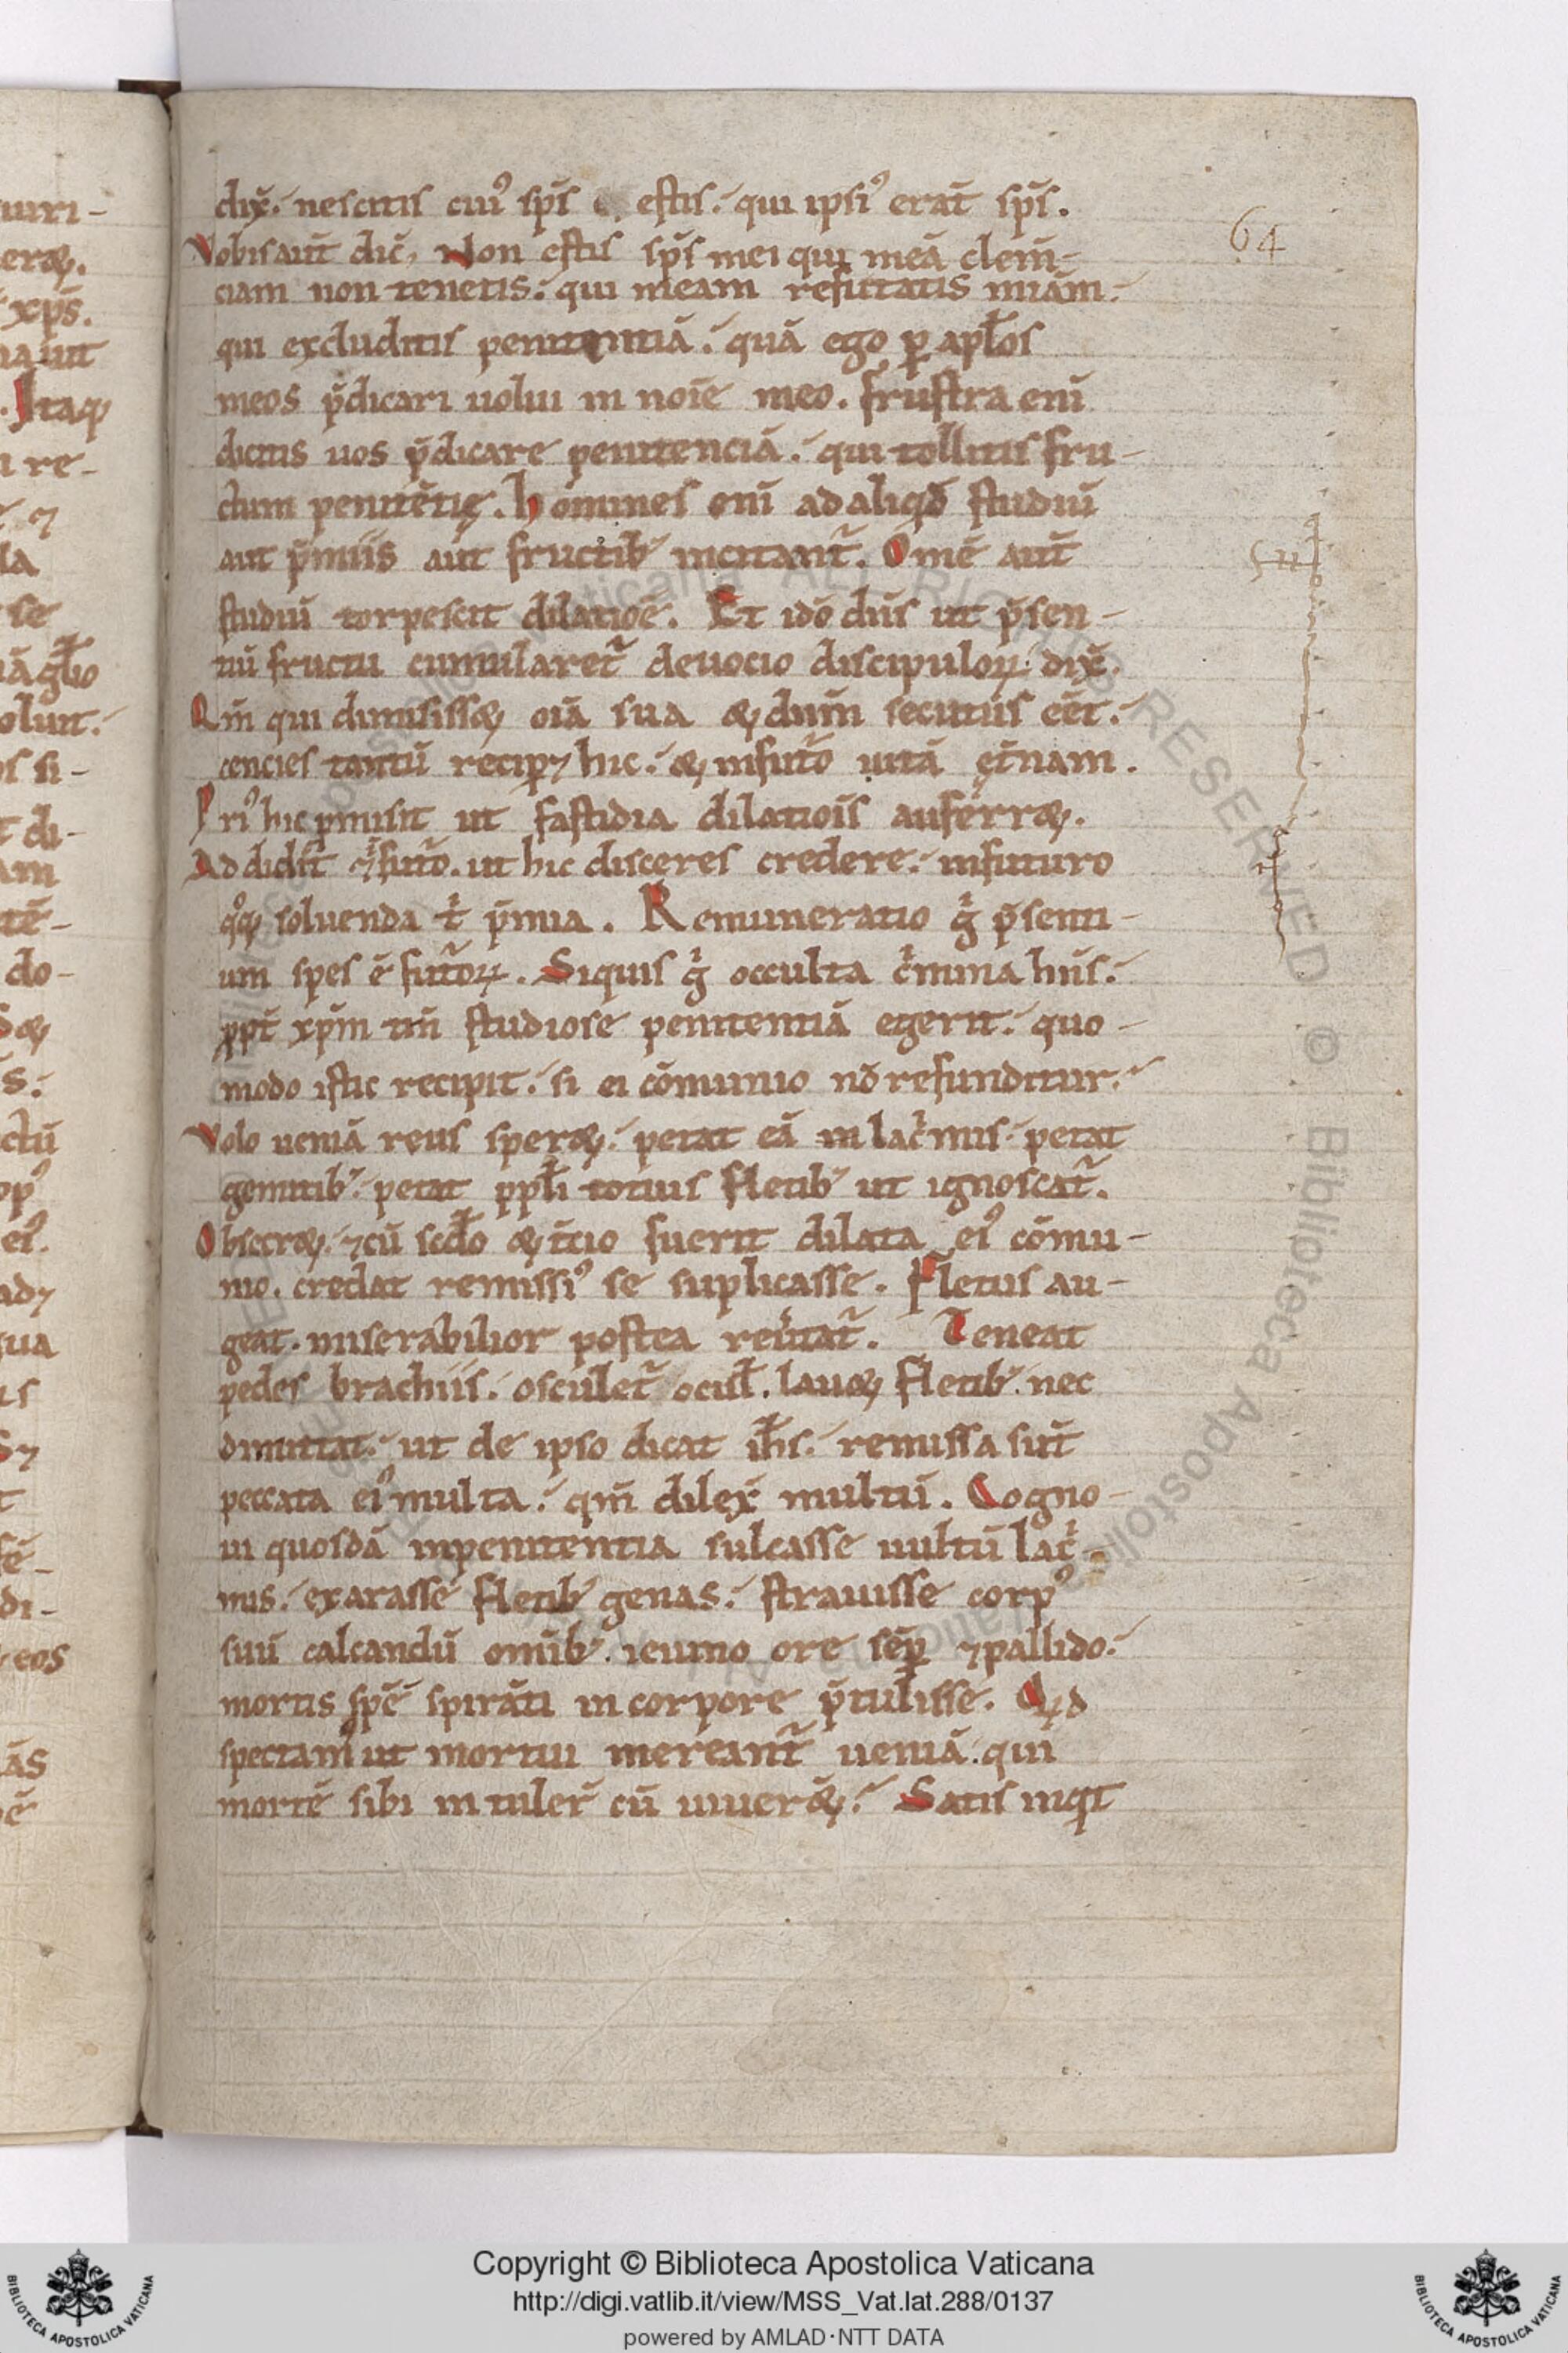 dix̄. nescitis cuiꝰ sp̄s estis. qui ipsiꝰ erat̄ sp̄s.
64
Vobis aut̄ dic̄, Non estis sp̄s mei qui meā clem̄-
ciam non tenetis. qui meam refutatis miam̄.
qui excluditis penitentiā. quā ego ꝑ apl̄os
meos p̄dicari uolui in noīe meo. frustra enī
dicitis uos p̄dicare penitenciā. qui tollitis fru-
ctum penitētię. homines enī ad aliqđ studiū
aut p̄miis aut fructib; incitant̄. Omē aut̄
studiū torpescit dilatiōe. Et idō dn̄s ut p̄sen-
tiū fructu cumularet̄ deuocio discipuloꝝ dix̄.
Qm̄ qui dimisiss& oīa sua & dn̄m secutus ēet.
cencies tantū recip⁊ hic. & in fut̄o uitā ęt̄nam.
Priꝰ hic p̄misit ut fastidia dilatiōis auferr&.
Addidit ⁊ ī fut̄o. ut hic disceres credere. in futuro
qͦq; soluenda t̄ p̄mia. Remuneratio g̊ p̄senti-
um spes ē futoꝝ. Siquis g̊ occulta c̄mina hn̄s.
ꝓpt̄ xp̄m tn̄ studiose penitentiā egerit. quo-
modo istic recipit. si ei cōmunio nō refunditur.
Volo ueniā reus sper&. petat eā in lac̄mis. petat
gemitib;. petat ppl̄i totius fletib; ut ignoscat̄.
Obsecr&. ⁊ cū scđo & t̄cio fuerit dilata eiꝰ cōmu-
nio. credat remissiꝰ se suplicasse. Fletus au-
geat. miserabilior postea reūtat̄. Teneat
pedes brachiis. osculet̄ ocul̄. lau& fletib;. nec
dimittat. ut de ipso dicat ih̄s. remissa sūt
peccata eiꝰ multa. qm̄ dilex̄ multū. Cogno-
ui quosdā in penitentia sulcasse uultū lac̄-
mis. exarasse fletib; genas. strauisse corpꝰ
suū calcandū omīb;. ieiuno ore sēp ⁊ pallido.
mortis spē̄ spirāti in corpore p̄tulisse. Qđ
spectamꝰ ut mortui mereant̄ ueniā. qui
mortē sibi intuler̄ cū uiuer&. Satis inqͥt
Copyright © Biblioteca Apostolica Vaticana
http://digi.vatlib.it/view/MSS_Vat.lat.288/0137
powered by AMLAD·NTT DATA